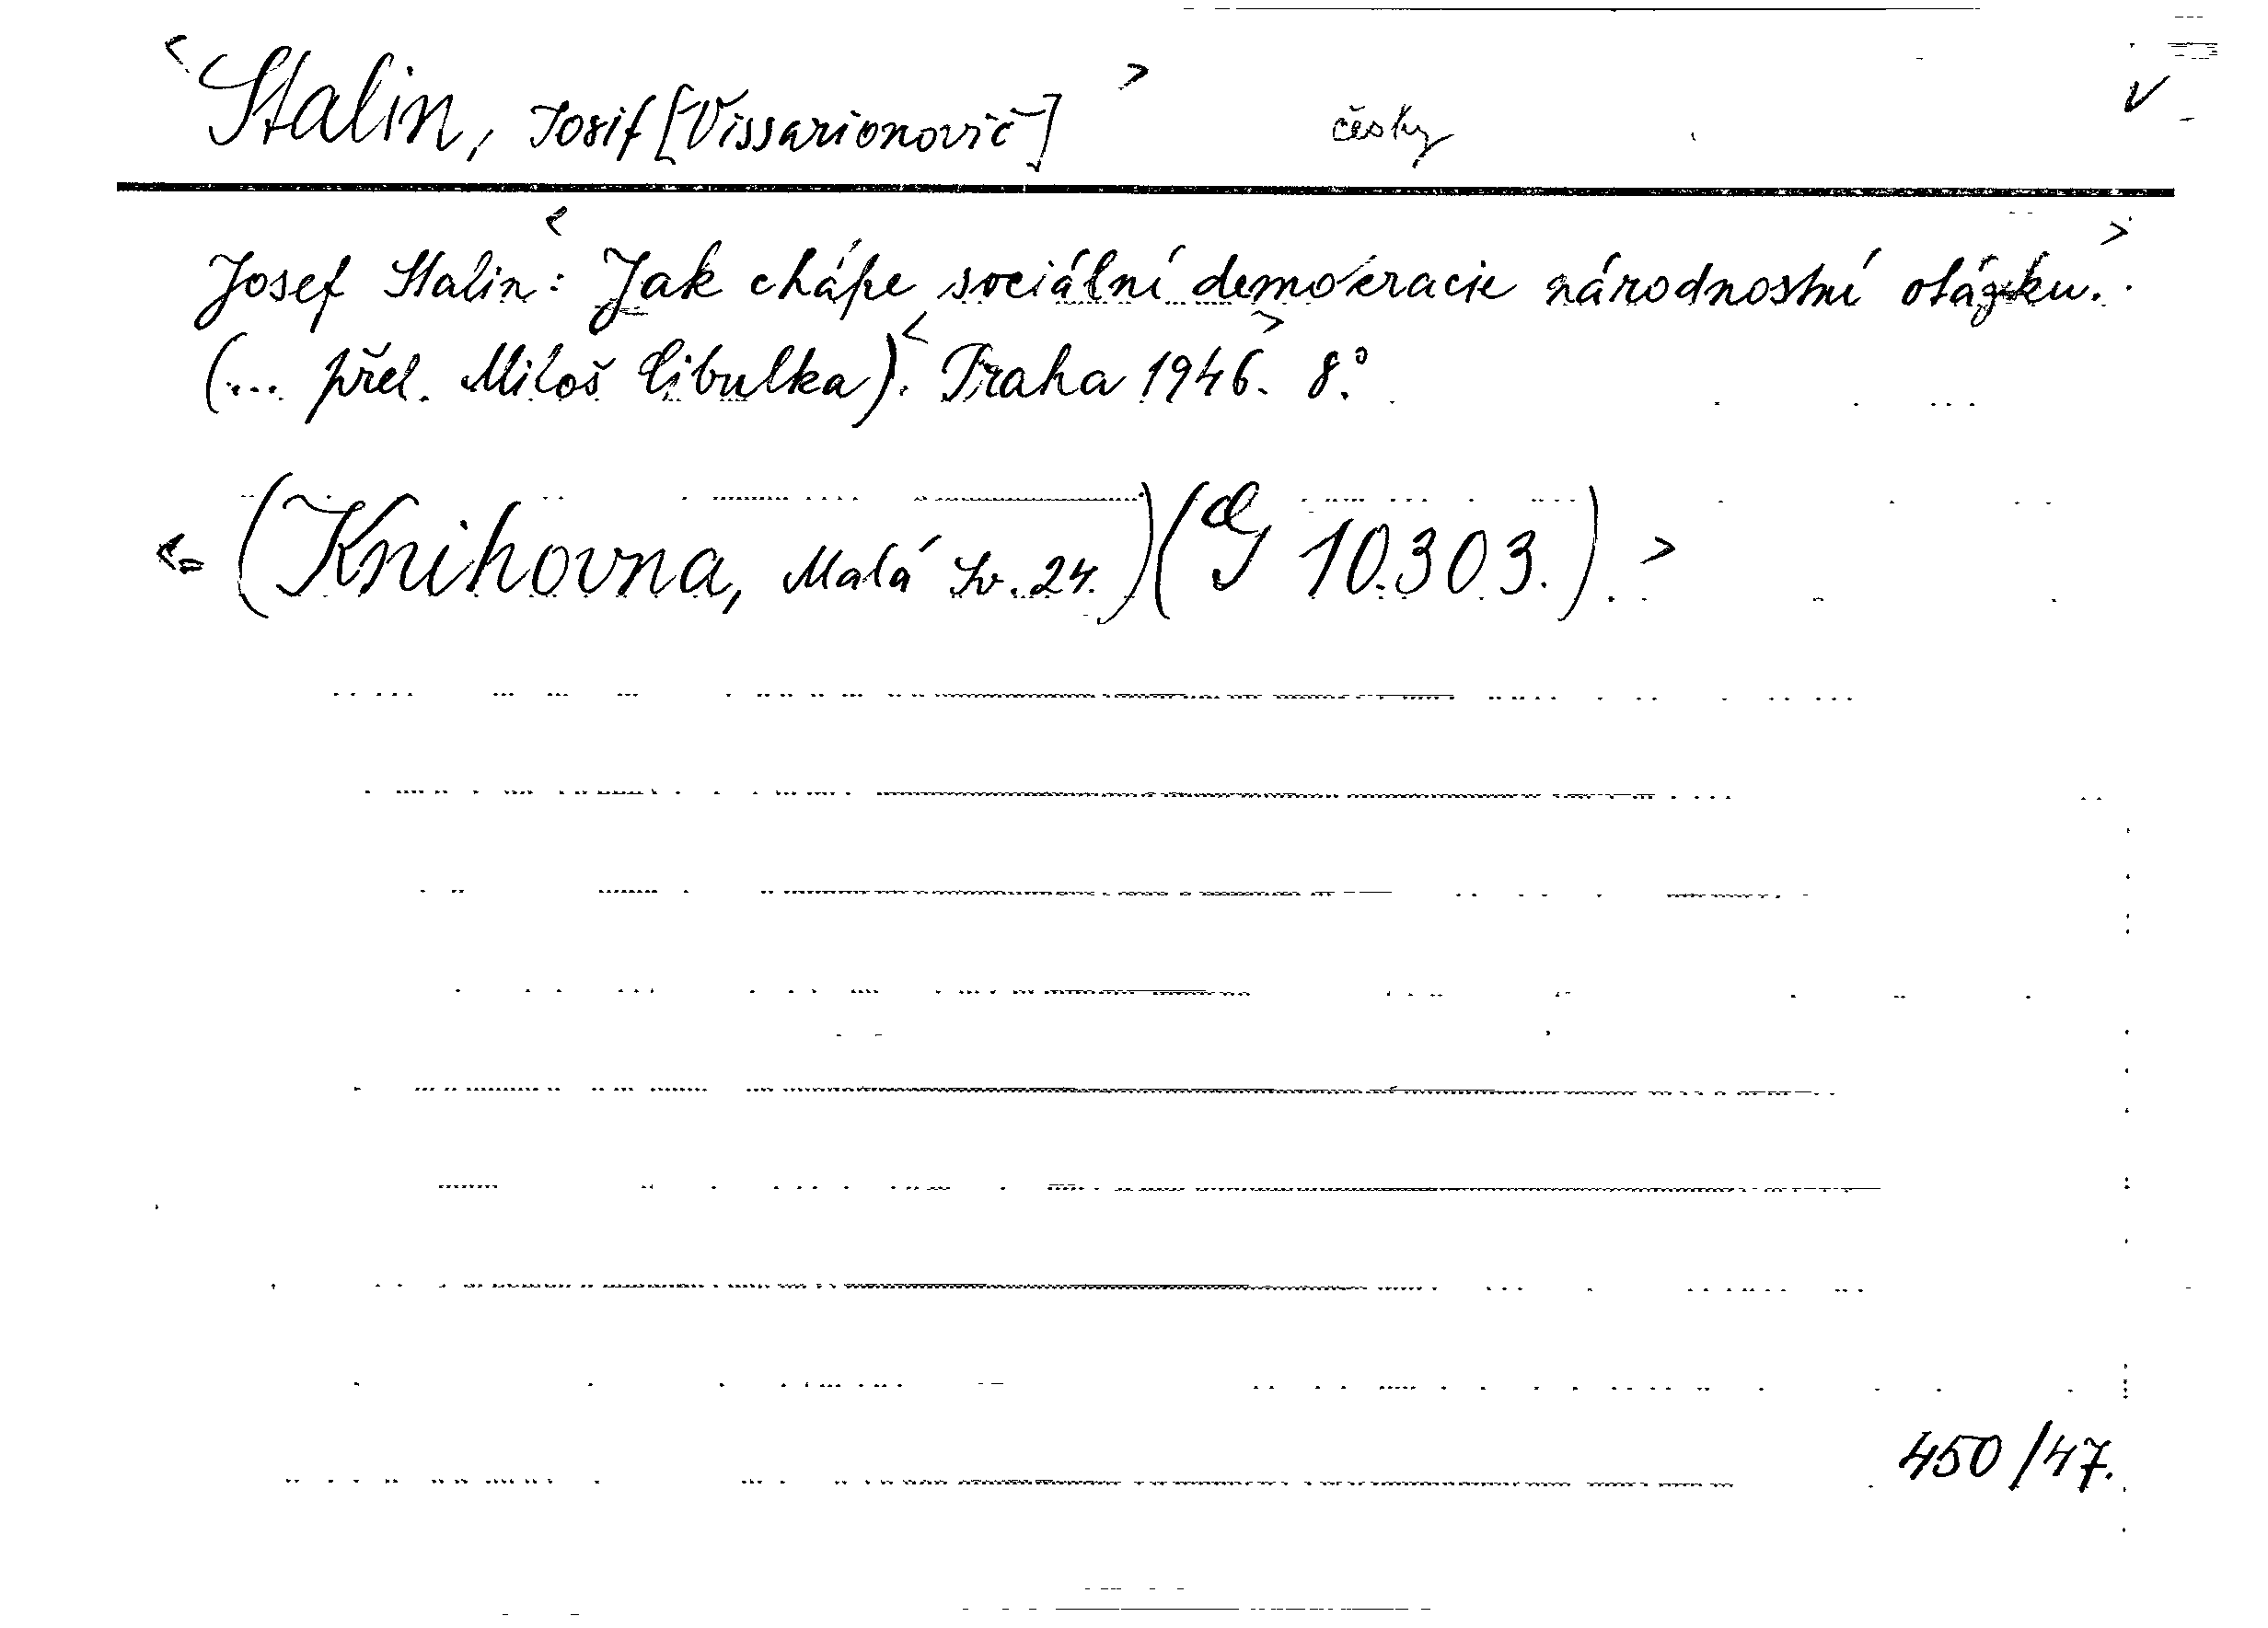 <Stalin, Josif [Vissarionovič]> česky V
Josef Stalin: <Jak chápe sociální demokracie národnostní otázku.>
(... přel. Miloš Cibulka). <Praha 1946>. 8°.
<= (Knihovna, Malá Sv. 24.) ( 10.303.) >
450/47.